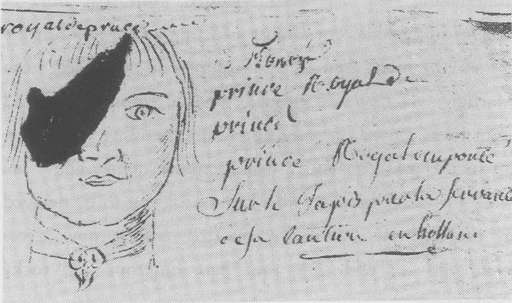 royal de pruce
Henry
prince Royal de
prince
prince Royal emporté
Sur le Tapis par la servante
de sa en hollan